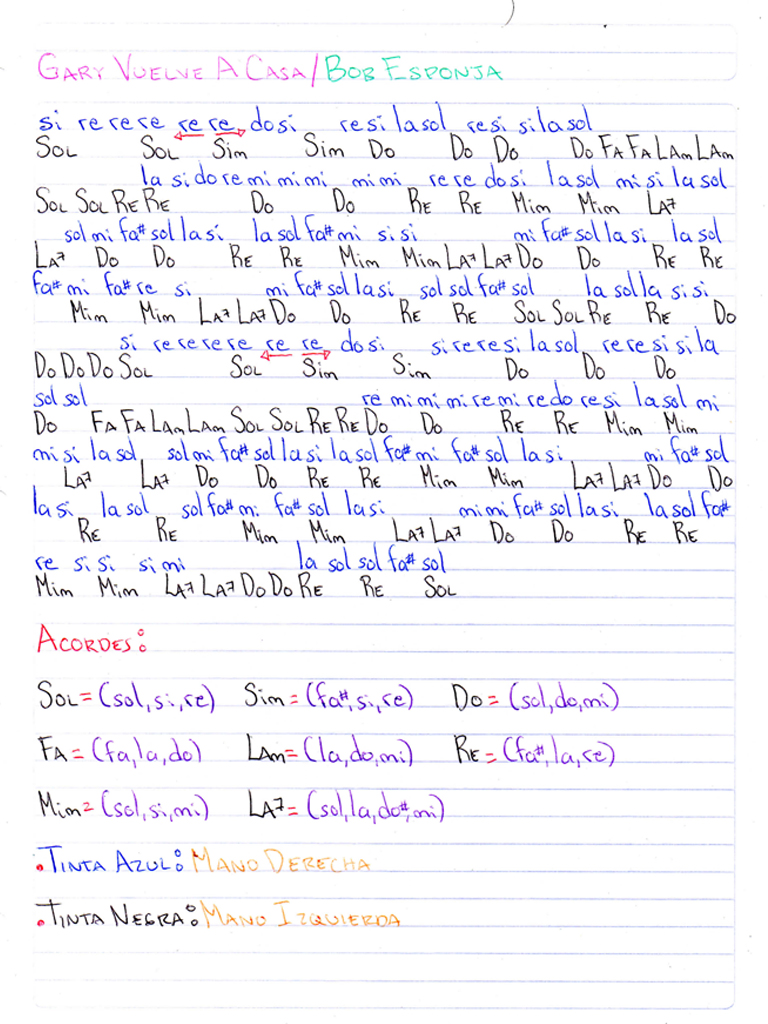 GARY VUELVE A CASA/BOB ESPONJA
si re re re re re do si re si la sol re si si la sol
SOL SOL Sim Sim DO DO DO DO FA FA LAm LAm
la si do re mi mi mi mi mi re re do si la sol mi si la sol
SOL SOL RE RE DO DO RE RE Mim Mim LA7
sol mi fa# sol la si la sol fa# mi si si mi fa# sol la si la sol
LA7 DO DO RE RE Mim Mim LA7 LA7 DO DO RE RE
fa# mi fa# re si mi fa# sol la si sol sol fa# sol la sol la si si
Mim Mim LA7 LA7 DO DO RE RE SOL SOL RE RE DO
si re re re re re re do si si re re si la sol re re si si la
DO DO DO SOL SOL Sim Sim DO DO DO
sol sol re mi mi mi re mi re do re si la sol mi
DO FA FA LAm LAm SOL SOL RE RE DO DO RE RE Mim Mim
mi si la sol sol mi fa# sol la si la sol fa# mi fa# sol la si mi fa# sol
LA7 LA7 DO DO RE RE Mim Mim LA7 LA7 DO DO
la si la sol sol fa# mi fa# sol la si mi mi fa# sol la si la sol fa#
RE RE Mim Mim LA7 LA7 DO DO RE RE
re si si si mi la sol sol fa# sol
Mim Mim LA7 LA7 DO DO RE RE SOL
ACORDES:
SOL=(sol,si,re) Sim=(fa#,si,re) DO=(sol,do,mi)
FA=(fa,la,do) LAm=(la,do,mi) RE=(fa#,la,re)
Mim=(sol,si,mi) LA7=(sol,la,do#,mi)
.TINTA AZUL: MANO DERECHA
.TINTA NEGRA: MANO IZQUIERDA